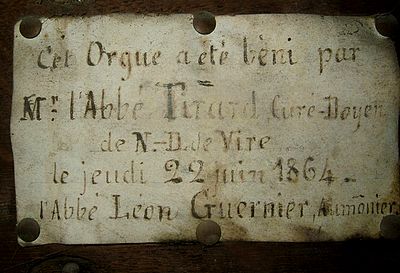 Cet Orgue a été bèni par
Mr. l'Abbé Tirard Curé-Doyen
de N.-D. de Vire
le jeudi 22 juin 1864.
l'Abbé Leon Guernier, Aumônier.